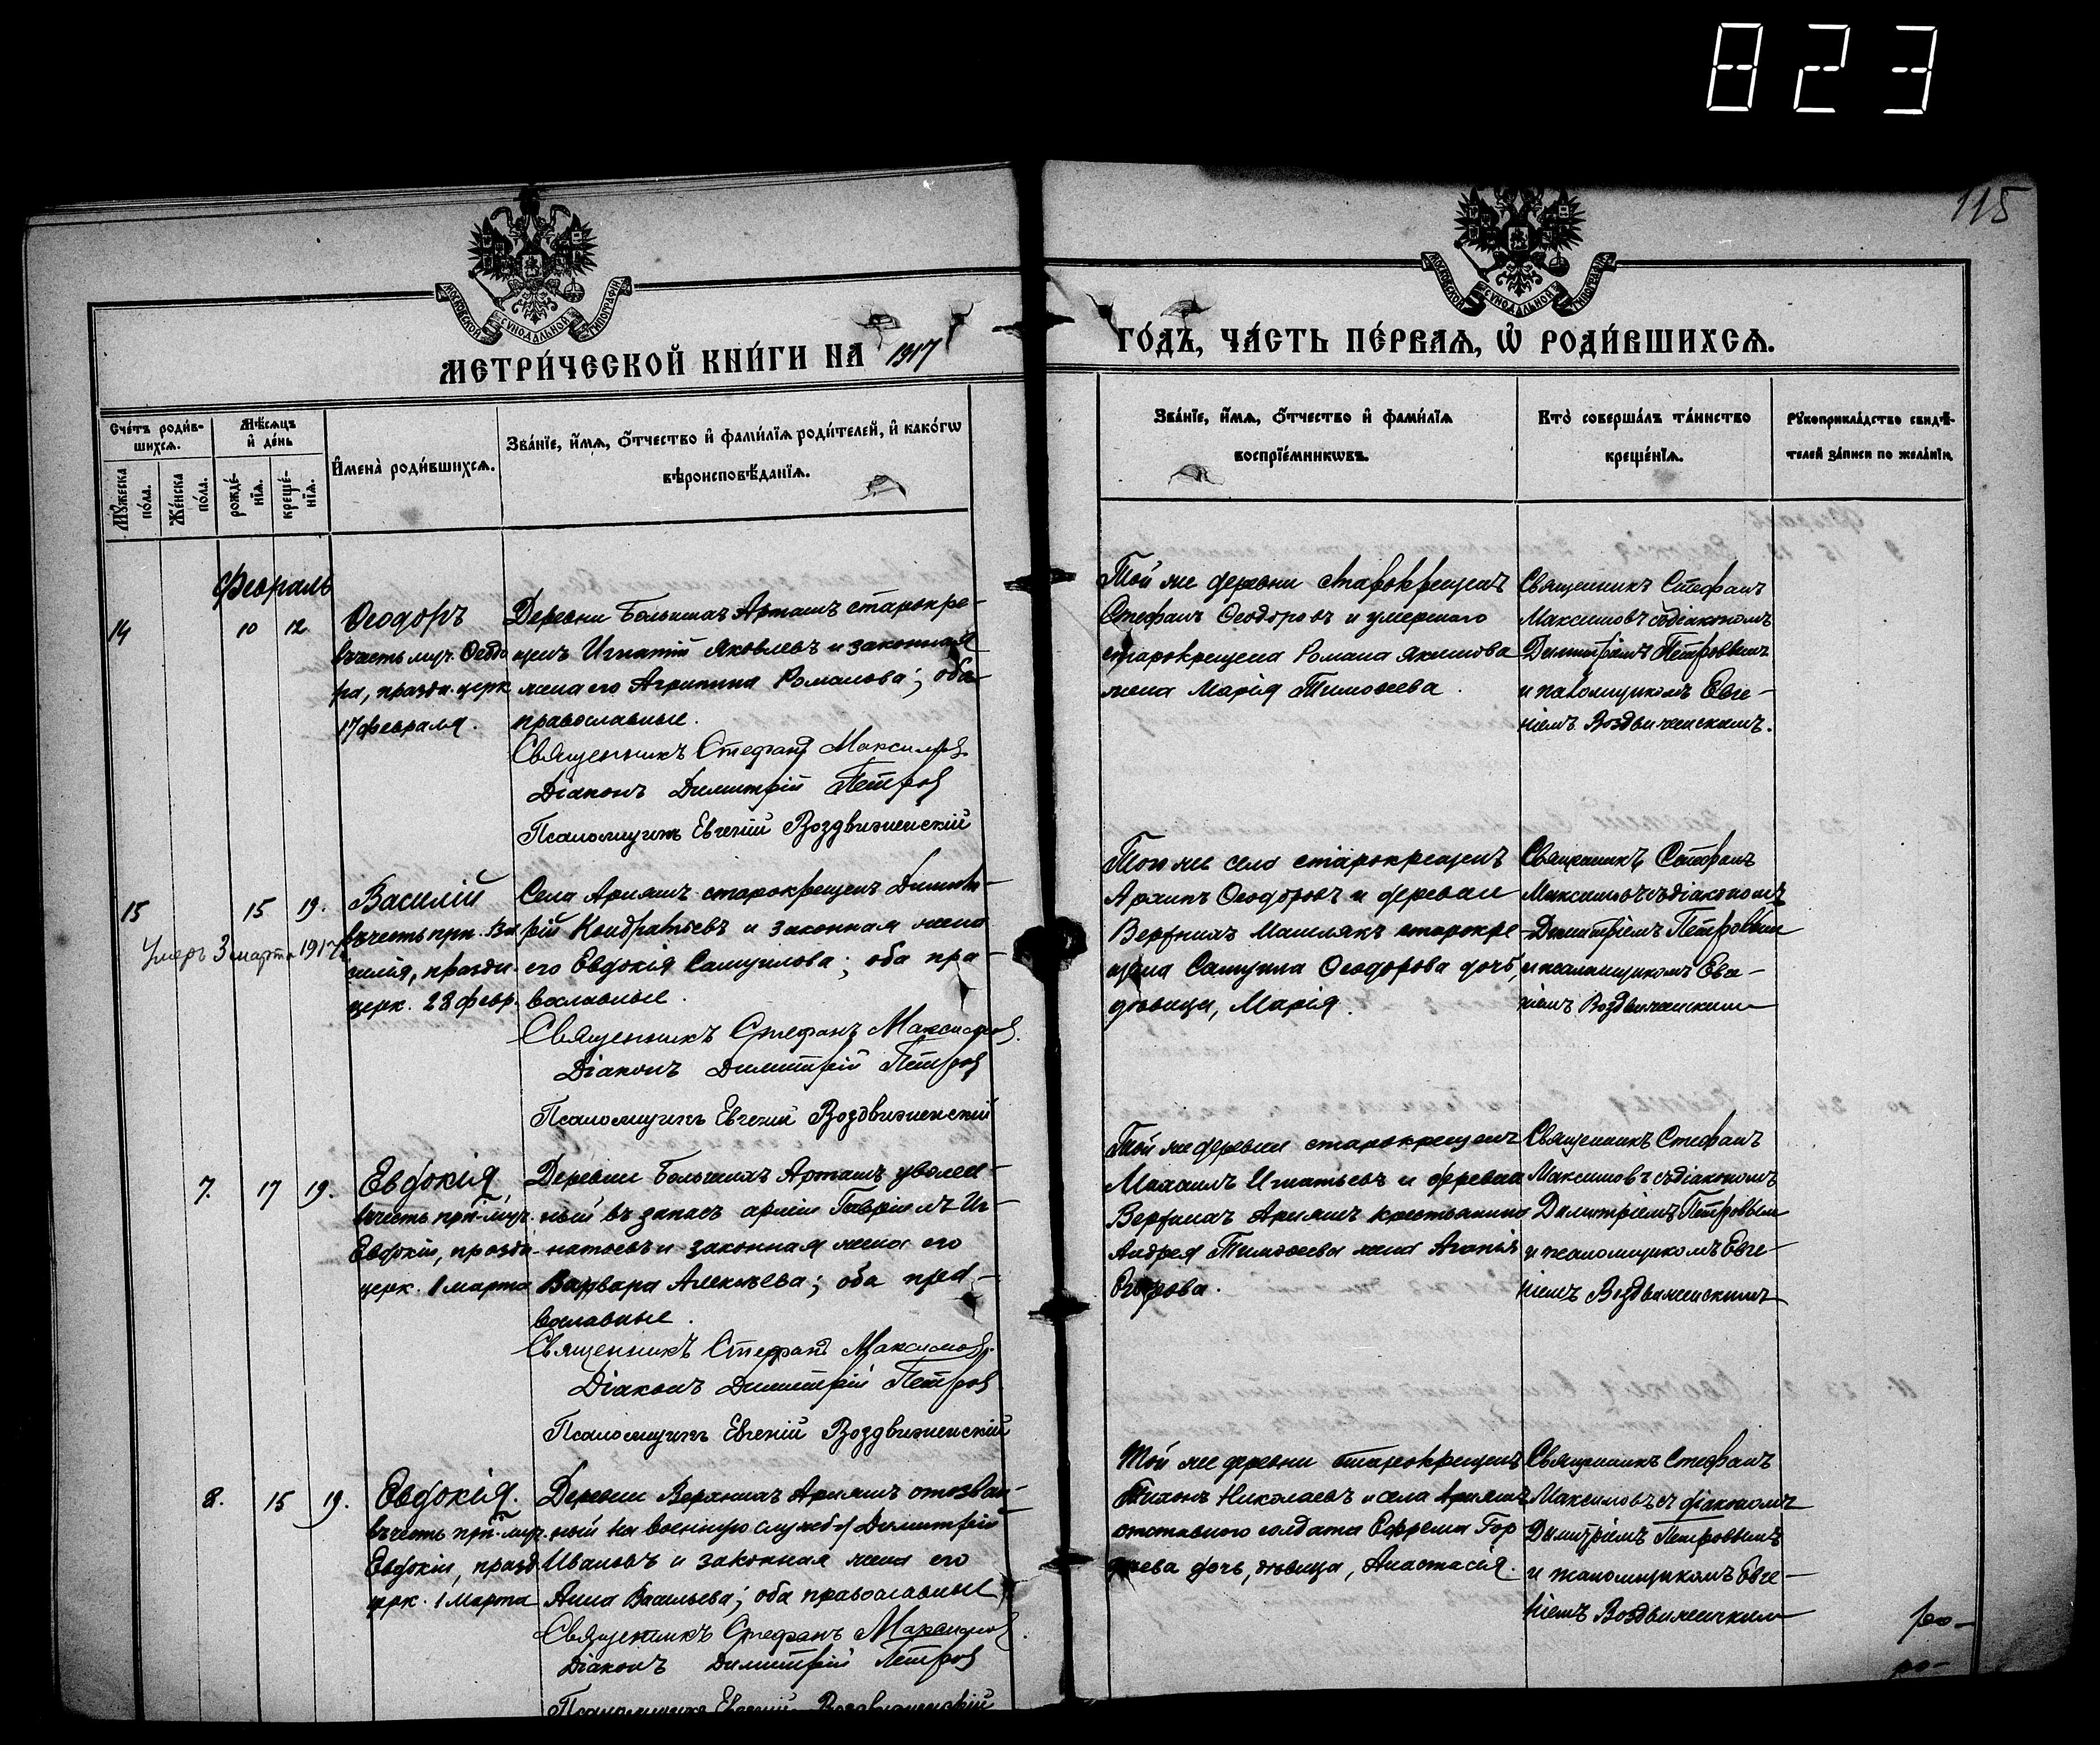 823
115
МОСКОВСКОЙ СУНОДАЛЬНОЙ ТИПОГРАФІИ
МОСКОВСКОЙ СУНОДАЛЬНОЙ ТИПОГРАФІИ
МЕТРИ́ЧЕСКОЙ КНИ́ГИ НА 1917
ГО́ДЪ, ЧА́СТЬ ПЕ́РВАѦ, Ѡ҆ РОДИ́ВШИХСѦ.
Сче́тъ роди́в-
шихсѧ.
Мѣ́сѧцъ
и҆ де́нь
Мꙋ́жеска
по́ла.
Же́нска
по́ла.
рожде́-
нїѧ.
креще́-
нїѧ.
И҆мена̀ роди́вшихсѧ.
Зва́нїе, и҆́мѧ, ѻ҆́тчество и҆ фами́лїѧ роди́телей, и҆ како́гѡ
вѣроисповѣ́данїѧ.
Зва́нїе, и҆́мѧ, ѻ҆́тчество и҆ фами́лїѧ
воспрїе́мникѡвъ.
Кто̀ соверша́лъ та́инство
креще́нїѧ.
Рꙋкоприкла́дство свидѣ́-
телей за́писи по жела́нїю.
Февраль
14
10
12
Ѳеодоръ
въ честь муч. Ѳеодо
ра, праздн. церк
17 февраля.
Деревни Большихъ Арташъ старокре-
щенъ Игнатій Яковлевъ и законная
жена его Агрипина Романова; оба
православные.
Священникъ Стефанъ Максимовъ
Діаконъ Димитрій Петровъ
Псаломщикъ Евгеній Воздвиженскій
Той же деревни старокрещенъ
Стефанъ Ѳеодоровъ и умершаго
старокрещена Романа Якимова
жена Марія Тимоѳеева.
Священникъ Стефанъ
Максимовъ съ діакономъ
Димитріемъ Петровымъ
и псаломщикомъ Евге-
ніемъ Воздвиженскимъ.
15
15
19.
Умеръ 3 марта 1917
Василій
въ честь прп. Ва
силія, праздн.
церк. 28 февр.
Села Аряшъ старокрещенъ Димит-
рій Кондратьевъ и законная жена
его Евдокія Самуилова; оба пра-
вославные.
Священникъ Стефанъ Максимовъ.
Діаконъ Димитрій Петровъ
Псаломщикъ Евгеній Воздвиженскій
Того же села старокрещенъ
Архипъ Ѳеодоровъ и деревни
Верхнихъ Машлякъ старокре
щена Самуила Ѳеодорова дочь,
дѣвица, Марія.
Священникъ Стефанъ
Максимовъ съ діакономъ
Димитріемъ Петровым
и псаломщикомъ Евге-
ніемъ Воздвиженским
7.
17
19.
Евдокія
въ честь прп.-муч.
Евдокіи, праздн.
церк. 1 марта
Деревни Большихъ Арташъ уволен-
ный въ запасъ арміи Гавріилъ Иг-
натьевъ и законная жена его
Варвара Алексѣева; оба пра-
вославные.
Священникъ Стефанъ Максимовъ.
Діаконъ Димитрій Петровъ
Псаломщикъ Евгеній Воздвиженскій
Той же деревни старокрещенъ
Михаилъ Игнатьевъ и деревни
Верхнихъ Аряшъ крестьянина
Андрея Тимоѳеева жена Агапія
Егорова.
Священникъ Стефанъ
Максимовъ съ діакономъ
Димитріемъ Петровым
и псаломщикомъ Евге-
ніемъ Воздвиженскимъ
8.
15
19.
Евдокія.
въ честь прп.-муч.
Евдокіи, празд.
црк. 1 марта
Деревни Верхнихъ Аряшъ отозван-
ный на военную службу Димитрій
Ивановъ и законная жена его
Анна Васильева; оба православные
Священникъ Стефанъ Максимовъ.
Діаконъ Димитрій Петровъ
Псаломщикъ Евгеній Воздвиженскій
Той же деревни старокрещенъ
Тихонъ Николаевъ и села Аряшъ
отставного солдата Ефрема Гор
дѣева дочь, дѣвица, Анастасія.
Священникъ Стефанъ
Максимовъ съ діакономъ
Димитріемъ Петровымъ
и псаломщикомъ Евге-
ніемъ Воздвиженским
ро-